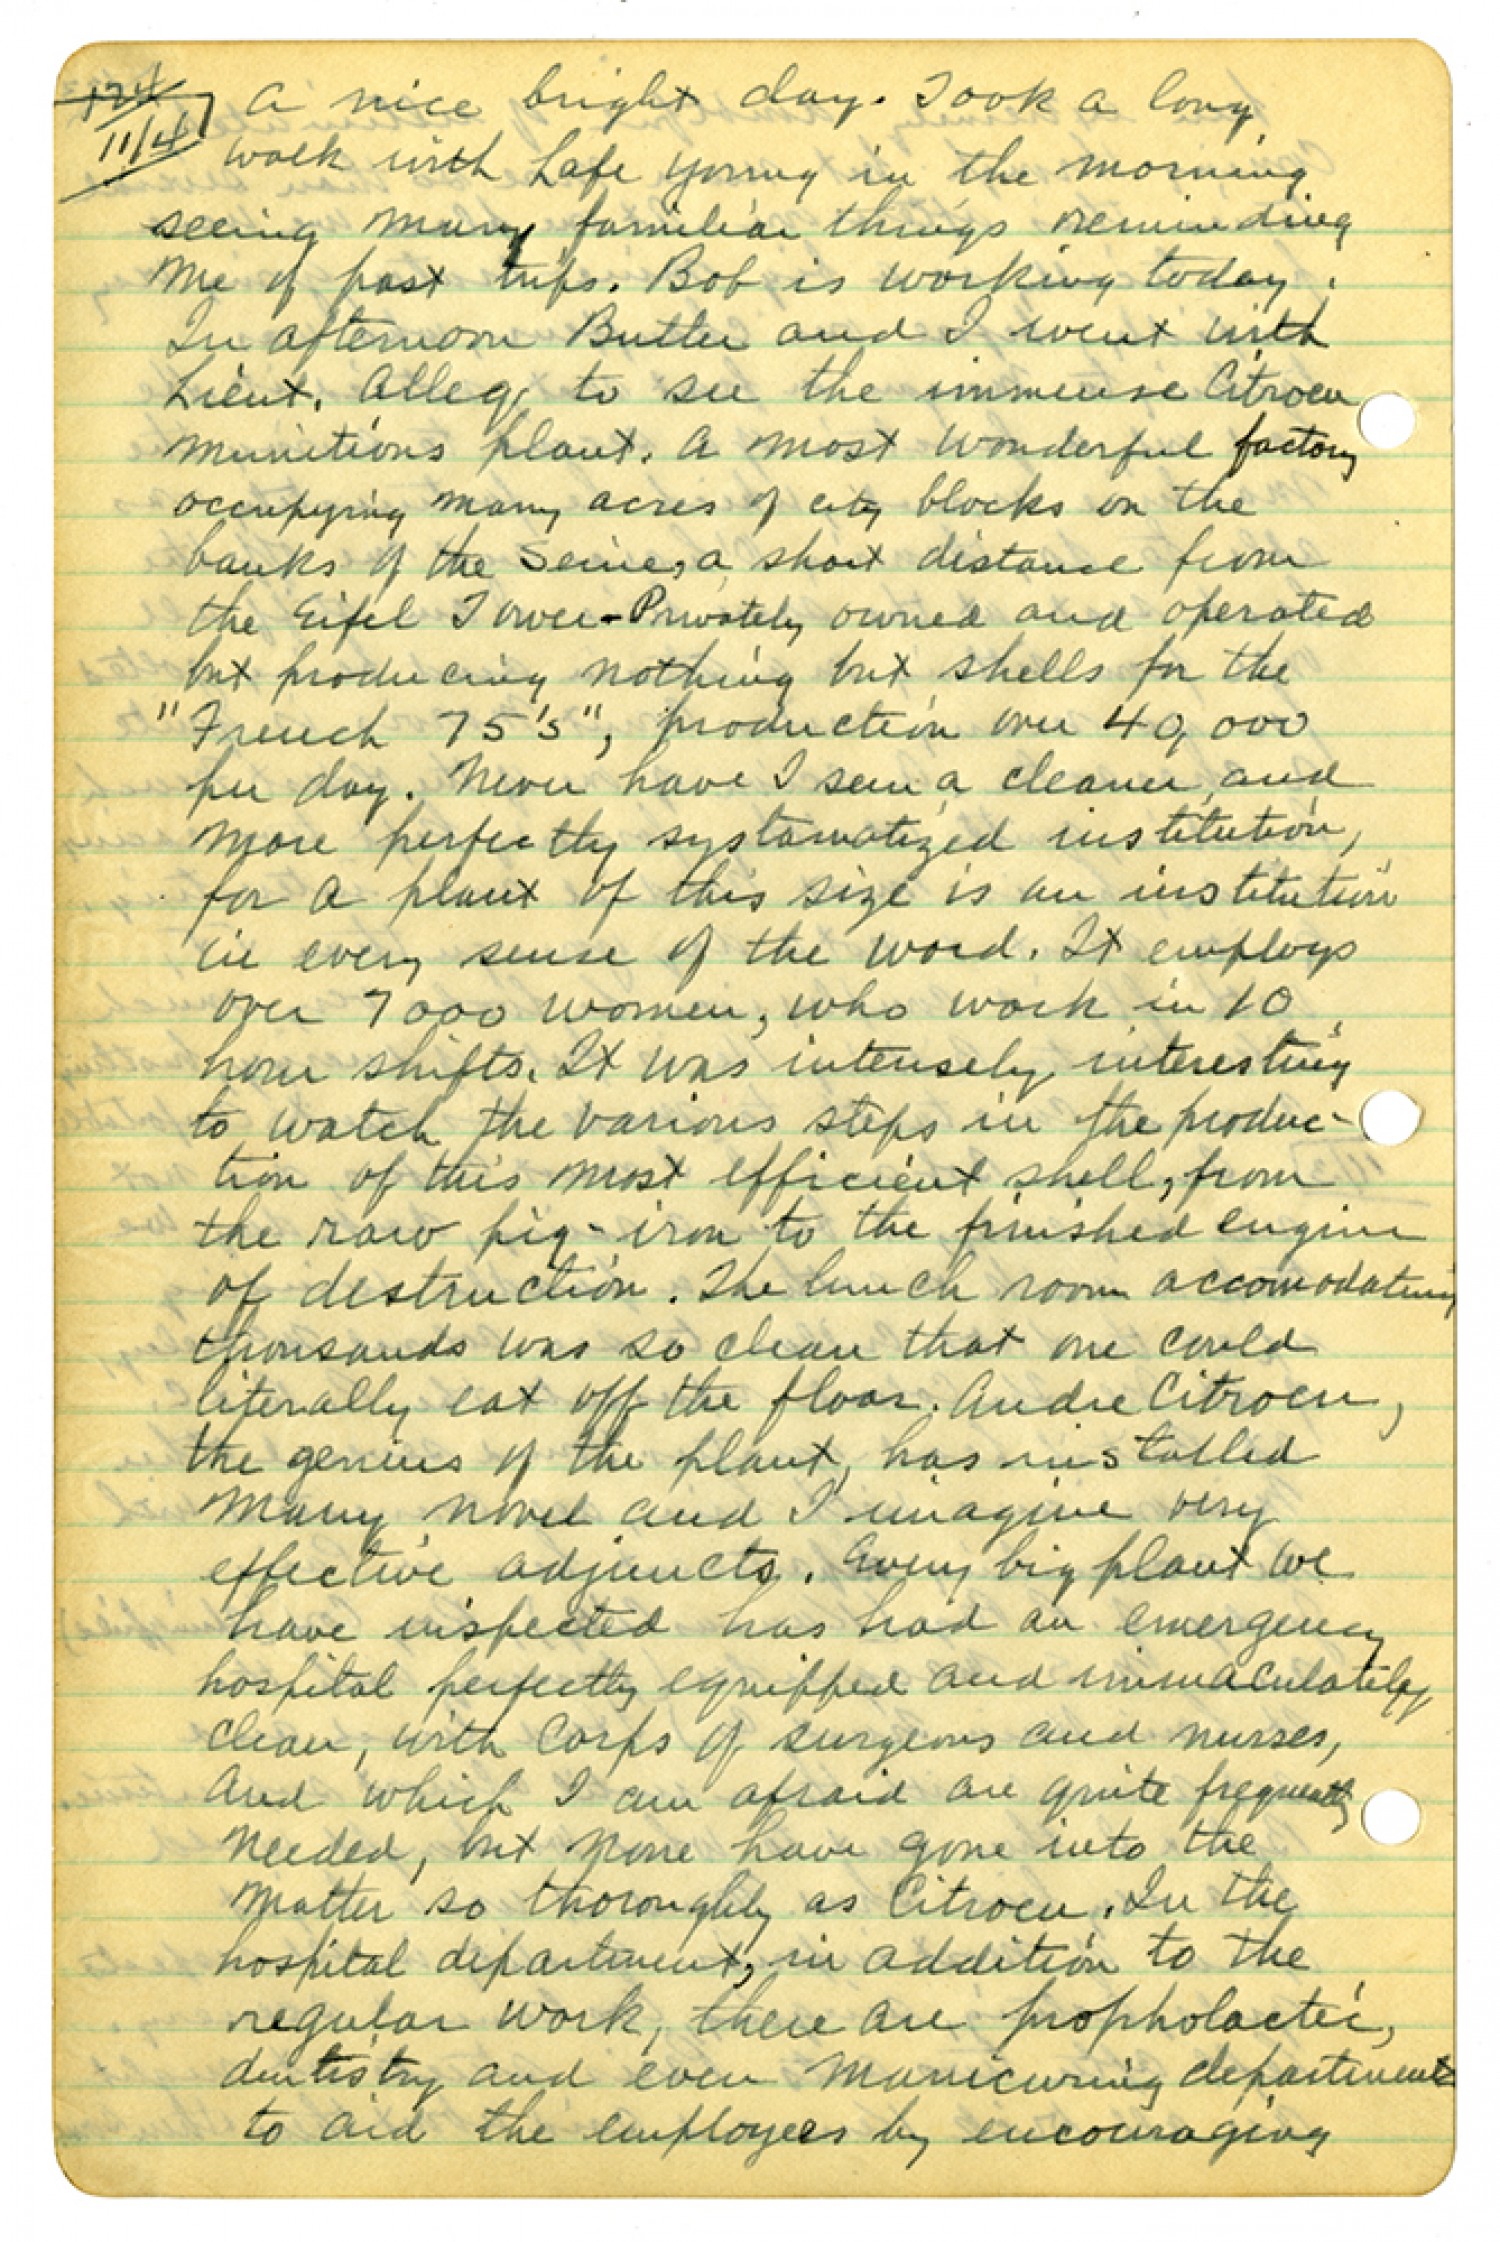 124
11/4
A nice bright day. Took a long
walk with Lafe Young in the morning
seeing many familiar things reminding
me of past trips. Bob is working today.
In afternoon Butler and I went with
Lieut. Alleg to see the immense Citroen
munitions plant. A most wonderful factory
occupying many acres of city blocks on the
banks of the Seine, a short distance from
the Eifel Tower - Privately owned and operated
but producing nothing but shells for the
"French 75's", production over 40,000
per day. Never have I seen a cleaner and
more perfectly systamatized institution,
for a plant of this size is an institution
in every sense of the word. It employs
over 7000 women, who work in 10
hour shifts. It was intensely interesting
to watch the various steps in the produc-
tion of this most efficient shell, from
the raw pig-iron to the finished engine
of destruction. The lunch room accomodating
thousands was so clean that one could
literally eat off the floor. Andre Citroen,
the genius of the plant, has installed
many novel and I imagine very
effective adjuncts. Every big plant we
have inspected has had an emergency
hospital perfectly equipped and immaculately
clean, with Corps of surgeons and nurses,
and which I am afraid are quite frequently
needed, but none have gone into the
matter so thoroughly as Citroen. In the
hospital department, in addition to the
regular work, there are propholactic,
dentistry and even manicuring departments
to aid the employees by encouraging